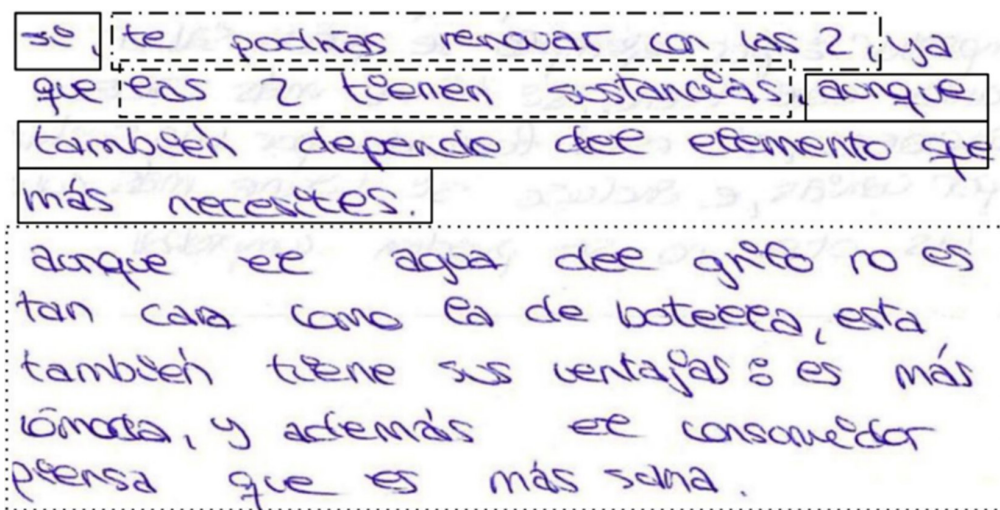 sí, te podrías renovar con las 2, ya
que las 2 tienen sustancias, aunque
también depende del elemento que
más necesites.
aunque el agua del grifo no es
tan cara como la de botella, esta
también tiene sus ventajas: es más
cómoda, y además el consumidor
piensa que es más sana.